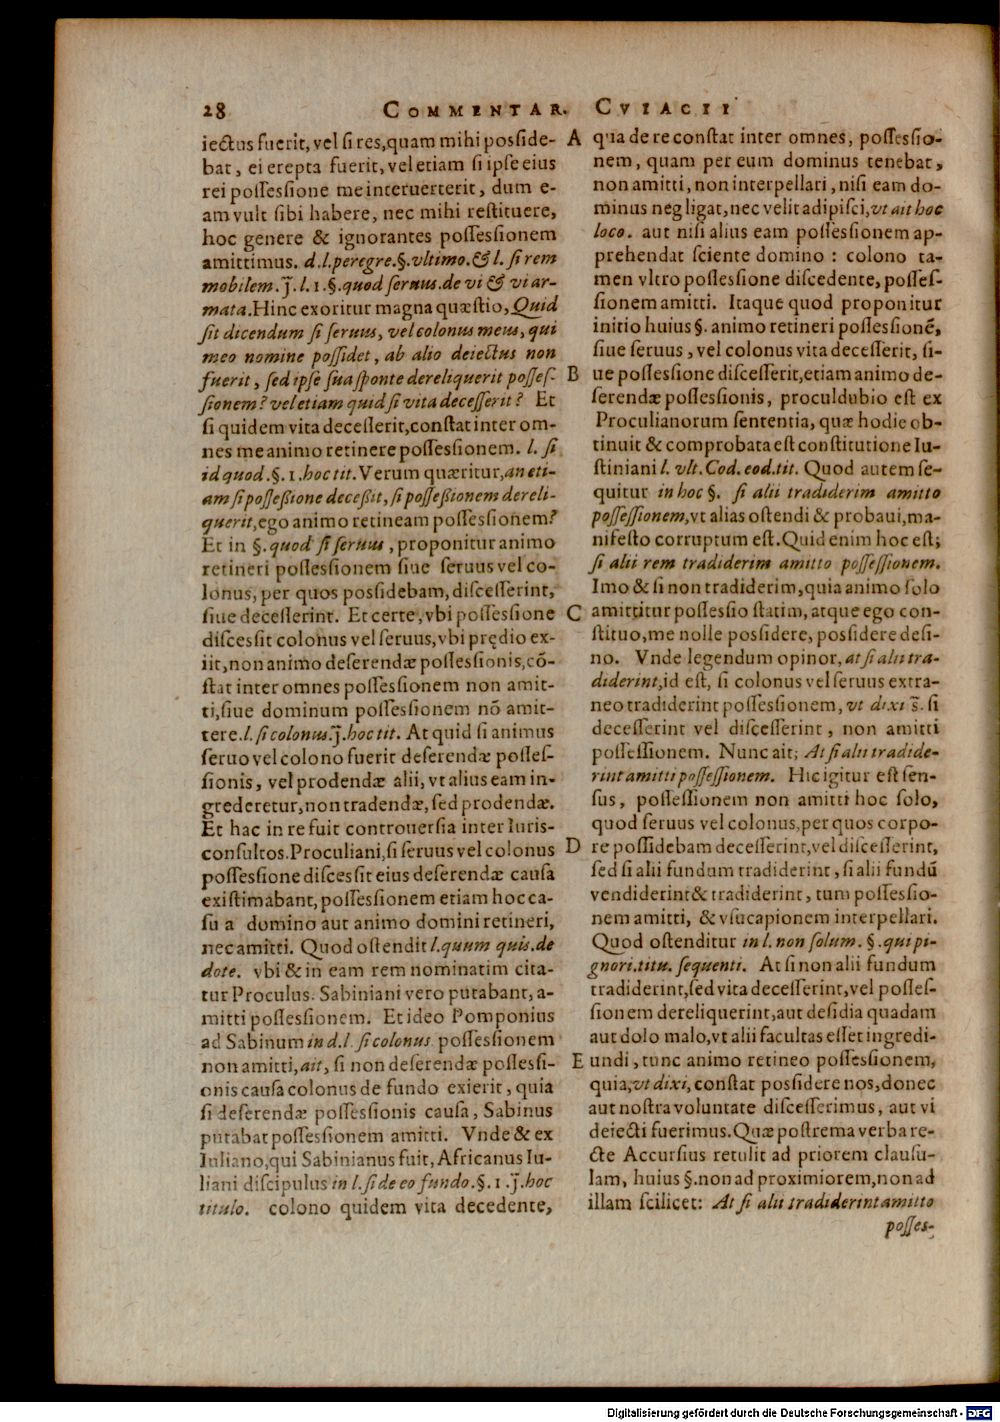 28 COMMENTAR. CVIACII
iectus fuerit, vel si res, quam mihi posside-
bat, ei erepta fuerit, vel etiam si ipse eius
rei possessione me interuerterit, dum e-
am vult sibi habere, nec mihi restituere,
hoc genere & ignorantes possessionem
amittimus. d.l. peregre. §. vltimo. & l. si rem
mobilem. j̄. l. 1. §. quod seruus. de vi & vi ar-
mata. Hinc exoritur magna quæstio, Quid
sit dicendum si seruus, vel colonus meus, qui
meo nomine possidet, ab alio deiectus non
fuerit, sed ipse sua sponte dereliquerit posses-
sionem? vel etiam quid si vita decesserit? Et
si quidem vita decesserit, constat inter om-
nes me animo retinere possessionem. l. si
id quod. §. 1. hoc tit. Verum quæritur, an eti-
am si possessione decessit, si possessionem dereli-
querit, ego animo retineam possessionem?
Et in §. quod si seruus, proponitur animo
retineri possessionem siue seruus vel co-
lonus, per quos possidebam, discesserint,
siue decesserint. Et certe, vbi possessione
discessit colonus vel seruus, vbi prędio ex-
iit, non animo deserendæ possessionis, cō-
stat inter omnes possessionem non amit-
ti, siue dominum possessionem nō amit-
tere. l. si colonus. j̄. hoc tit. At quid si animus
seruo vel colono fuerit deserendæ posses-
sionis, vel prodendæ alii, vt alius eam in-
grederetur, non tradendæ, sed prodendæ.
Et hac in re fuit controuersia inter Iuris-
consultos. Proculiani, si seruus vel colonus
possessione discessit eius deserendæ causa
existimabant, possessionem etiam hoc ca-
su a domino aut animo domini retineri,
nec amitti. Quod ostendit l. quum quis. de
dote. vbi & in eam rem nominatim cita-
tur Proculus. Sabiniani vero putabant, a-
mitti possessionem. Et ideo Pomponius
ad Sabinum in d.l. si colonus possessionem
non amitti, ait, si non deserendæ possessi-
onis causa colonus de fundo exierit, quia
si deserendæ possessionis causa, Sabinus
putabat possessionem amitti. Vnde & ex
Iuliano, qui Sabinianus fuit, Africanus Iu-
liani discipulus in l. si de eo fundo. §. 1. j̄. hoc
titulo. colono quidem vita decedente,
A
B
C
D
E
qua de re constat inter omnes, possessio-
nem, quam per eum dominus tenebat,
non amitti, non interpellari, nisi eam do-
minus negligat, nec velit adipisci, vt ait hoc
loco. aut nisi alius eam possessionem ap-
prehendat sciente domino: colono ta-
men vltro possessione discedente, posses-
sionem amitti. Itaque quod proponitur
initio huius §. animo retineri possessionē,
siue seruus, vel colonus vita decesserit, si-
ue possessione discesserit, etiam animo de-
serendæ possessionis, proculdubio est ex
Proculianorum sententia, quæ hodie ob-
tinuit & comprobata est constitutione Iu-
stiniani l. vlt. Cod. eod. tit. Quod autem se-
quitur in hoc §. si alii tradiderim amitto
possessionem, vt alias ostendi & probaui, ma-
nifesto corruptum est. Quid enim hoc est;
si alii rem tradiderim amitto possessionem.
Imo & si non tradiderim, quia animo solo
amittitur possessio statim, atque ego con-
stituo, me nolle possidere, possidere desi-
no. Vnde legendum opinor, at si alii tra-
diderint, id est, si colonus vel seruus extra-
neo tradiderint possessionem, vt dixi s̄. si
decesserint vel discesserint, non amitti
possessionem. Nunc ait; At si alii tradide-
rint amitti possessionem. Hic igitur est sen-
sus, possessionem non amitti hoc solo,
quod seruus vel colonus, per quos corpo-
re possidebam decesserint, vel discesserint,
sed si alii fundum tradiderint, si alii fundū
vendiderint & tradiderint, tum possessio-
nem amitti, & vsucapionem interpellari.
Quod ostenditur in l. non solum. §. qui pi-
gnori. titu. sequenti. At si non alii fundum
tradiderint, sed vita decesserint, vel posses-
sionem dereliquerint, aut desidia quadam
aut dolo malo, vt alii facultas esset ingredi-
undi, tunc animo retineo possessionem,
quia, vt dixi, constat possidere nos, donec
aut nostra voluntate discesserimus, aut vi
deiecti fuerimus. Quæ postrema verba re-
cte Accursius retulit ad priorem clausu-
lam, huius §. non ad proximiorem, non ad
illam scilicet: At si alii tradiderint amitto
posses-
Digitalisierung gefördert durch die Deutsche Forschungsgemeinschaft - DFG